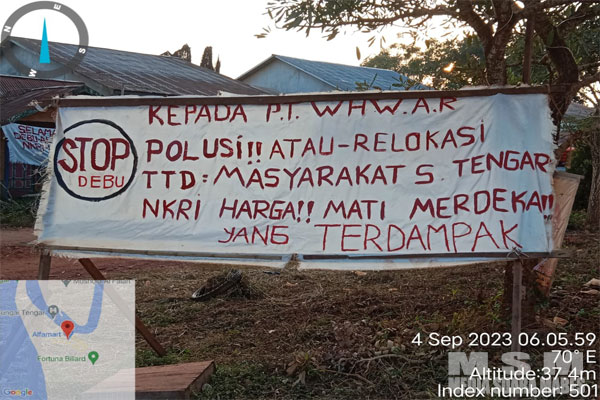 KEPADA P.T. WHW.A.R
STOP
DEBU
POLUSI!! ATAU-RELOKASI
TTD: MASYARAKAT S. TENGAR
NKRI HARGA!! MATI MERDEKA!!
YANG TERDAMPAK
SELAMA
E
S
W
Alfamart
Fortuna Billiard
Google
4 Sep 2023 06.05.59
70° E
Altitude:37.4m
Index number: 501